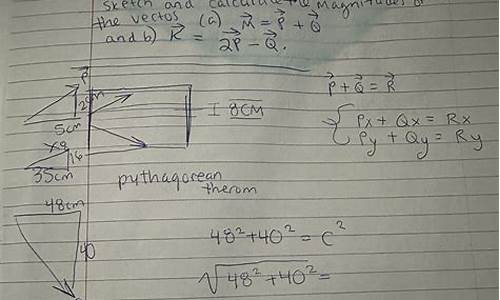 Sketch and calculate the magnitudes of
the vectos (a) M = P + Q
and b) R = 2P - Q.
P
P + Q = R
I 8CM
5cm
Px + Qx = Rx
Py + Qy = Ry
16
35cm
pythagorean
therom
48cm
40
48² + 40² = c²
√48² + 40² =